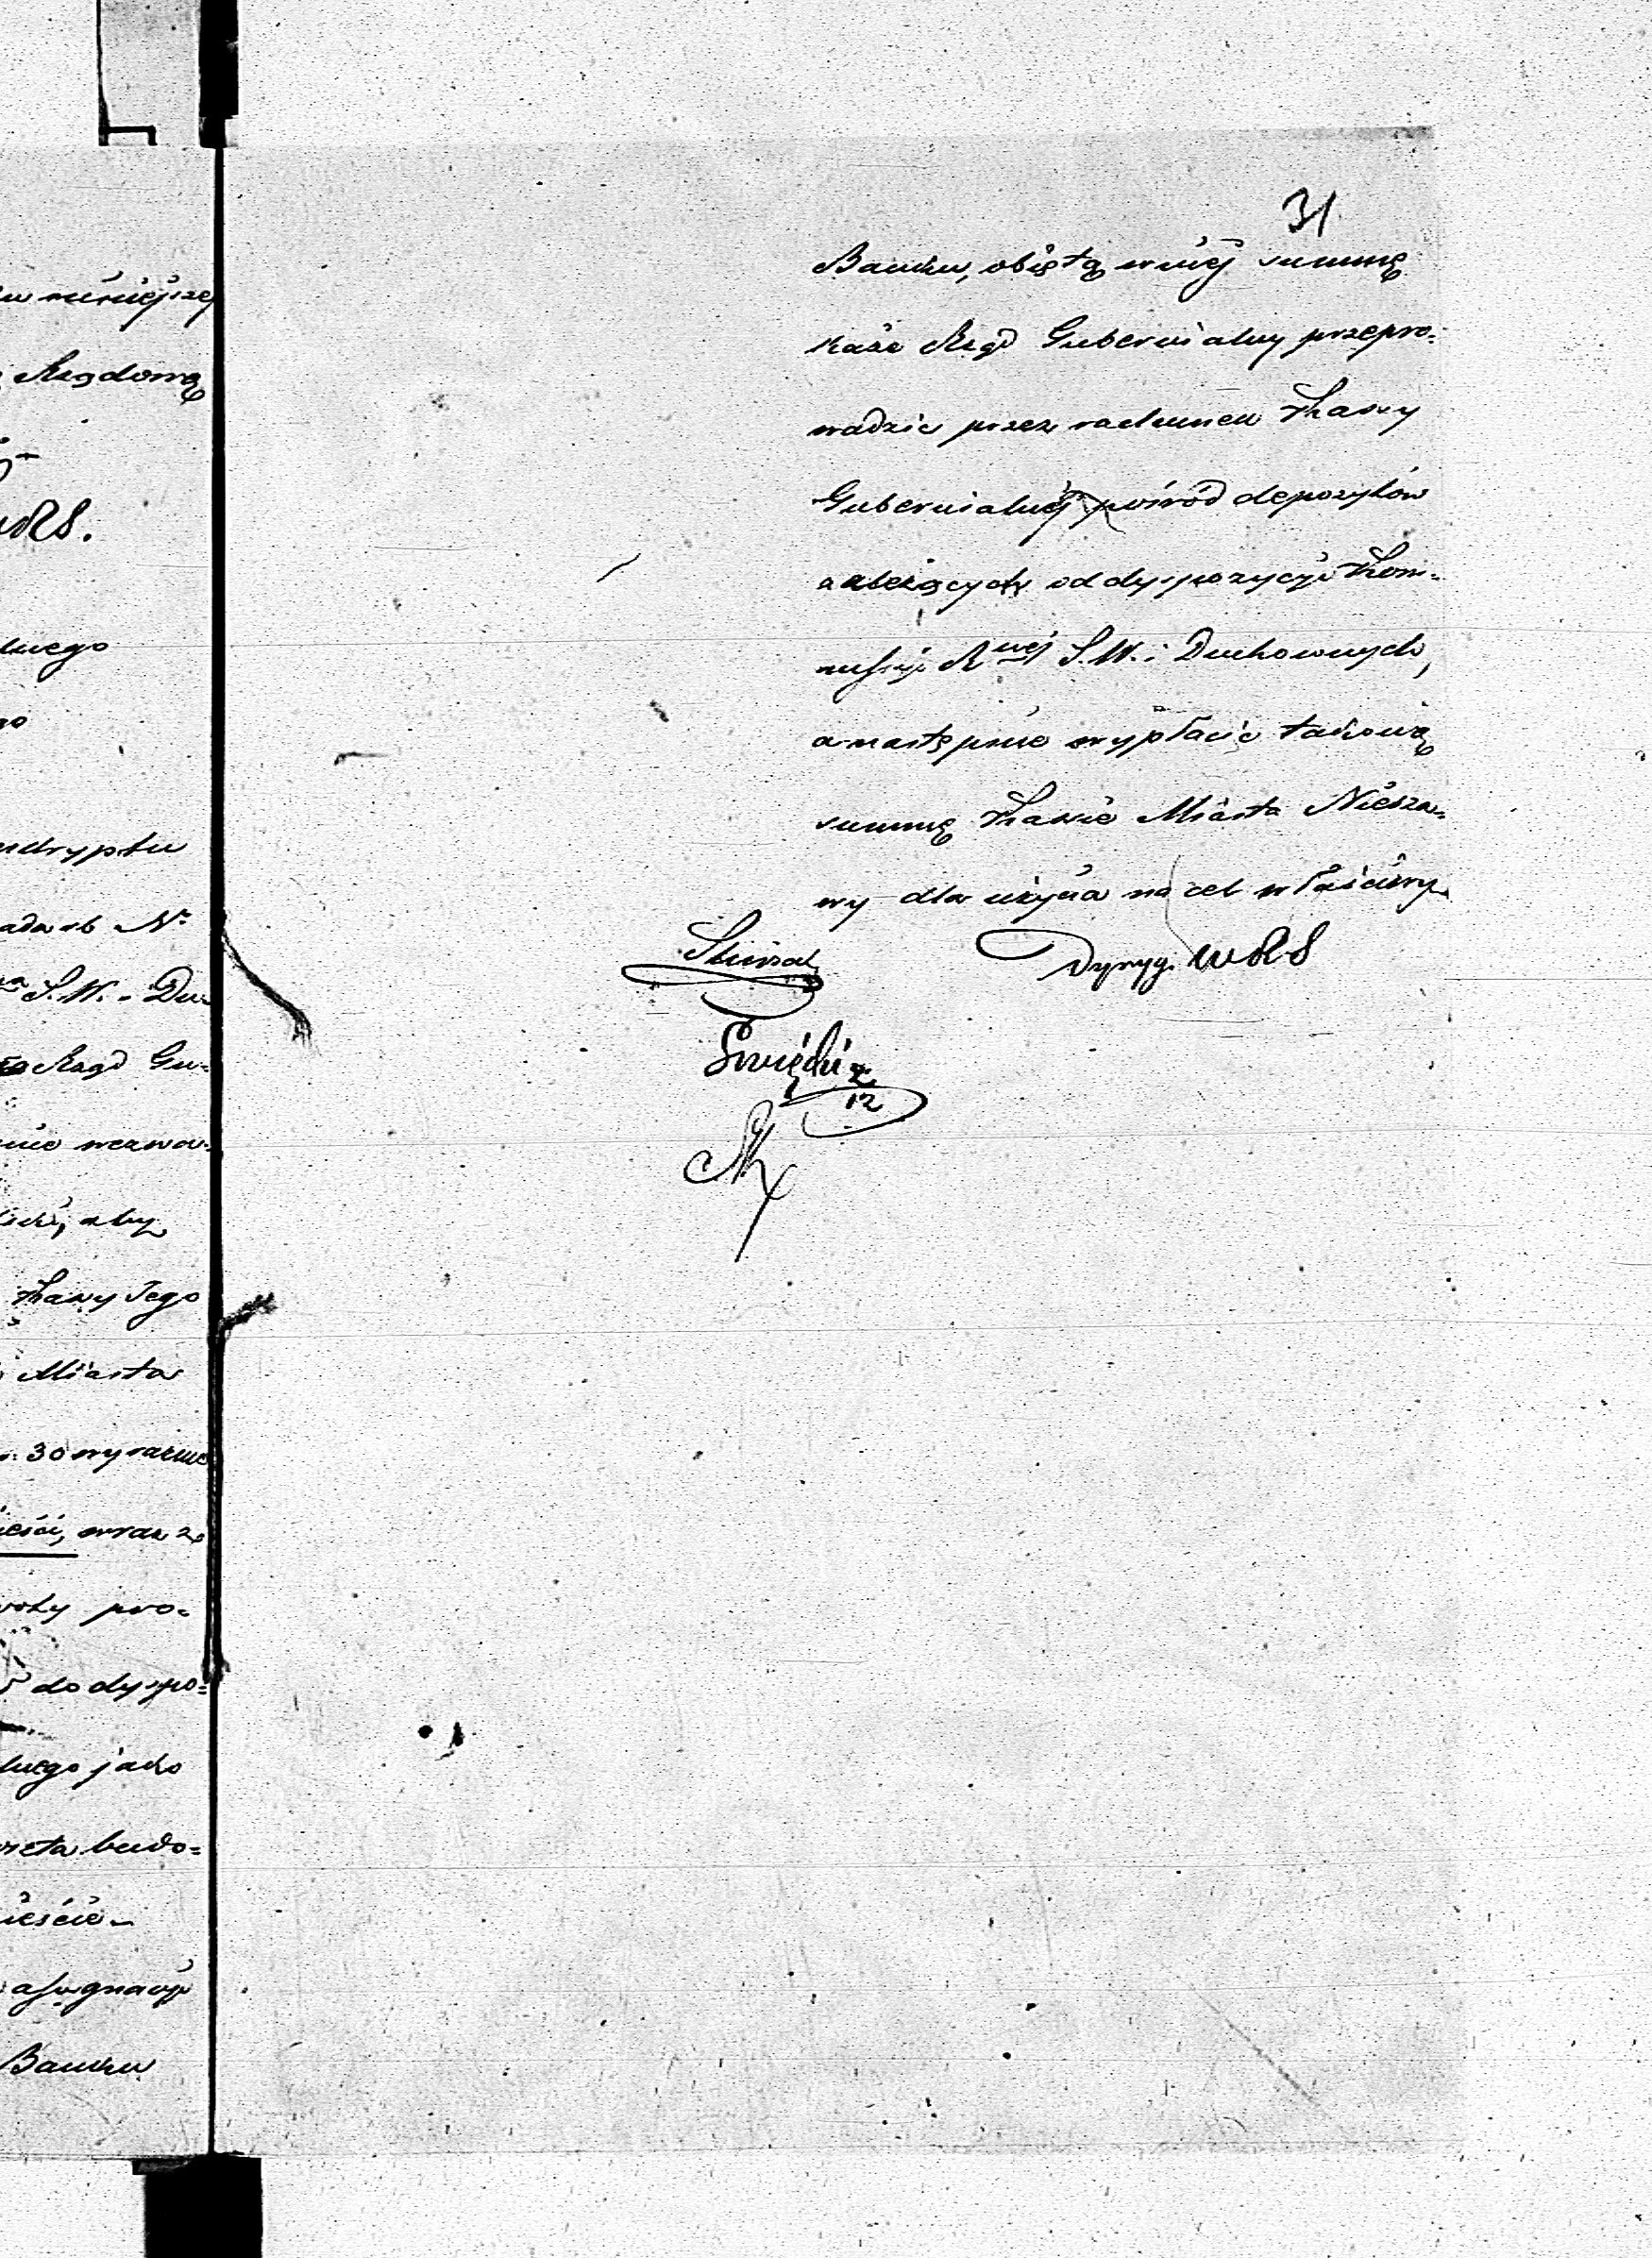 u niniejszej
Rządową
WRS.
lnego
go
eskryptu
adarb Nr
S. W. i Du-
Rząd Gu-
nie wezwa-
aby
Kassy Jego
Miasta
30 wyraźnie
ieści, wraz z
pro-
do dyspo-
lnego jako
budo-
ieście
assygnacyi
Banku
31
Banku, objętą w niéj summę
każe Rząd Gubernialny przepro-
wadzić przez rachunek Kassy
Gubernialnéj pośród depozytów
zależących od dyspozycyi Kom-
missyi Rwéj S. W. i Duchownych,
a następnie wypłacić takową
summę Kassie Miasta Niesza-
wy dla użycia na cel właściwy.
Dyryg. WRS
Święcki
12